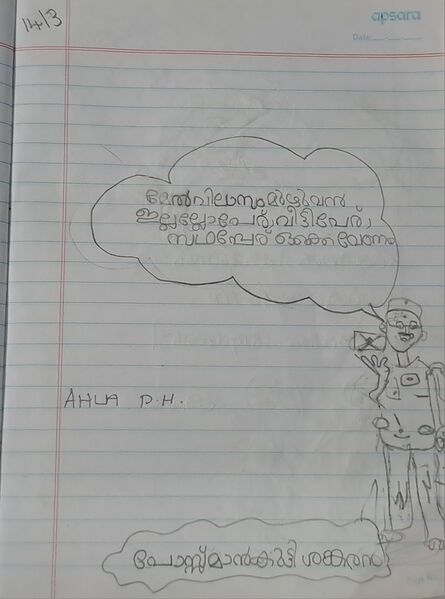 14/3
apsara
Date:
മേൽവിലാസം മുഴുവൻ
ഇല്ലല്ലോ പേര്, വീട്ടുപേര്,
സ്ഥലപ്പേര് ഒക്കെ വേണം
AHLA P.H.
പോസ്റ്റ്മാൻ കുട്ടി ശങ്കരൻ